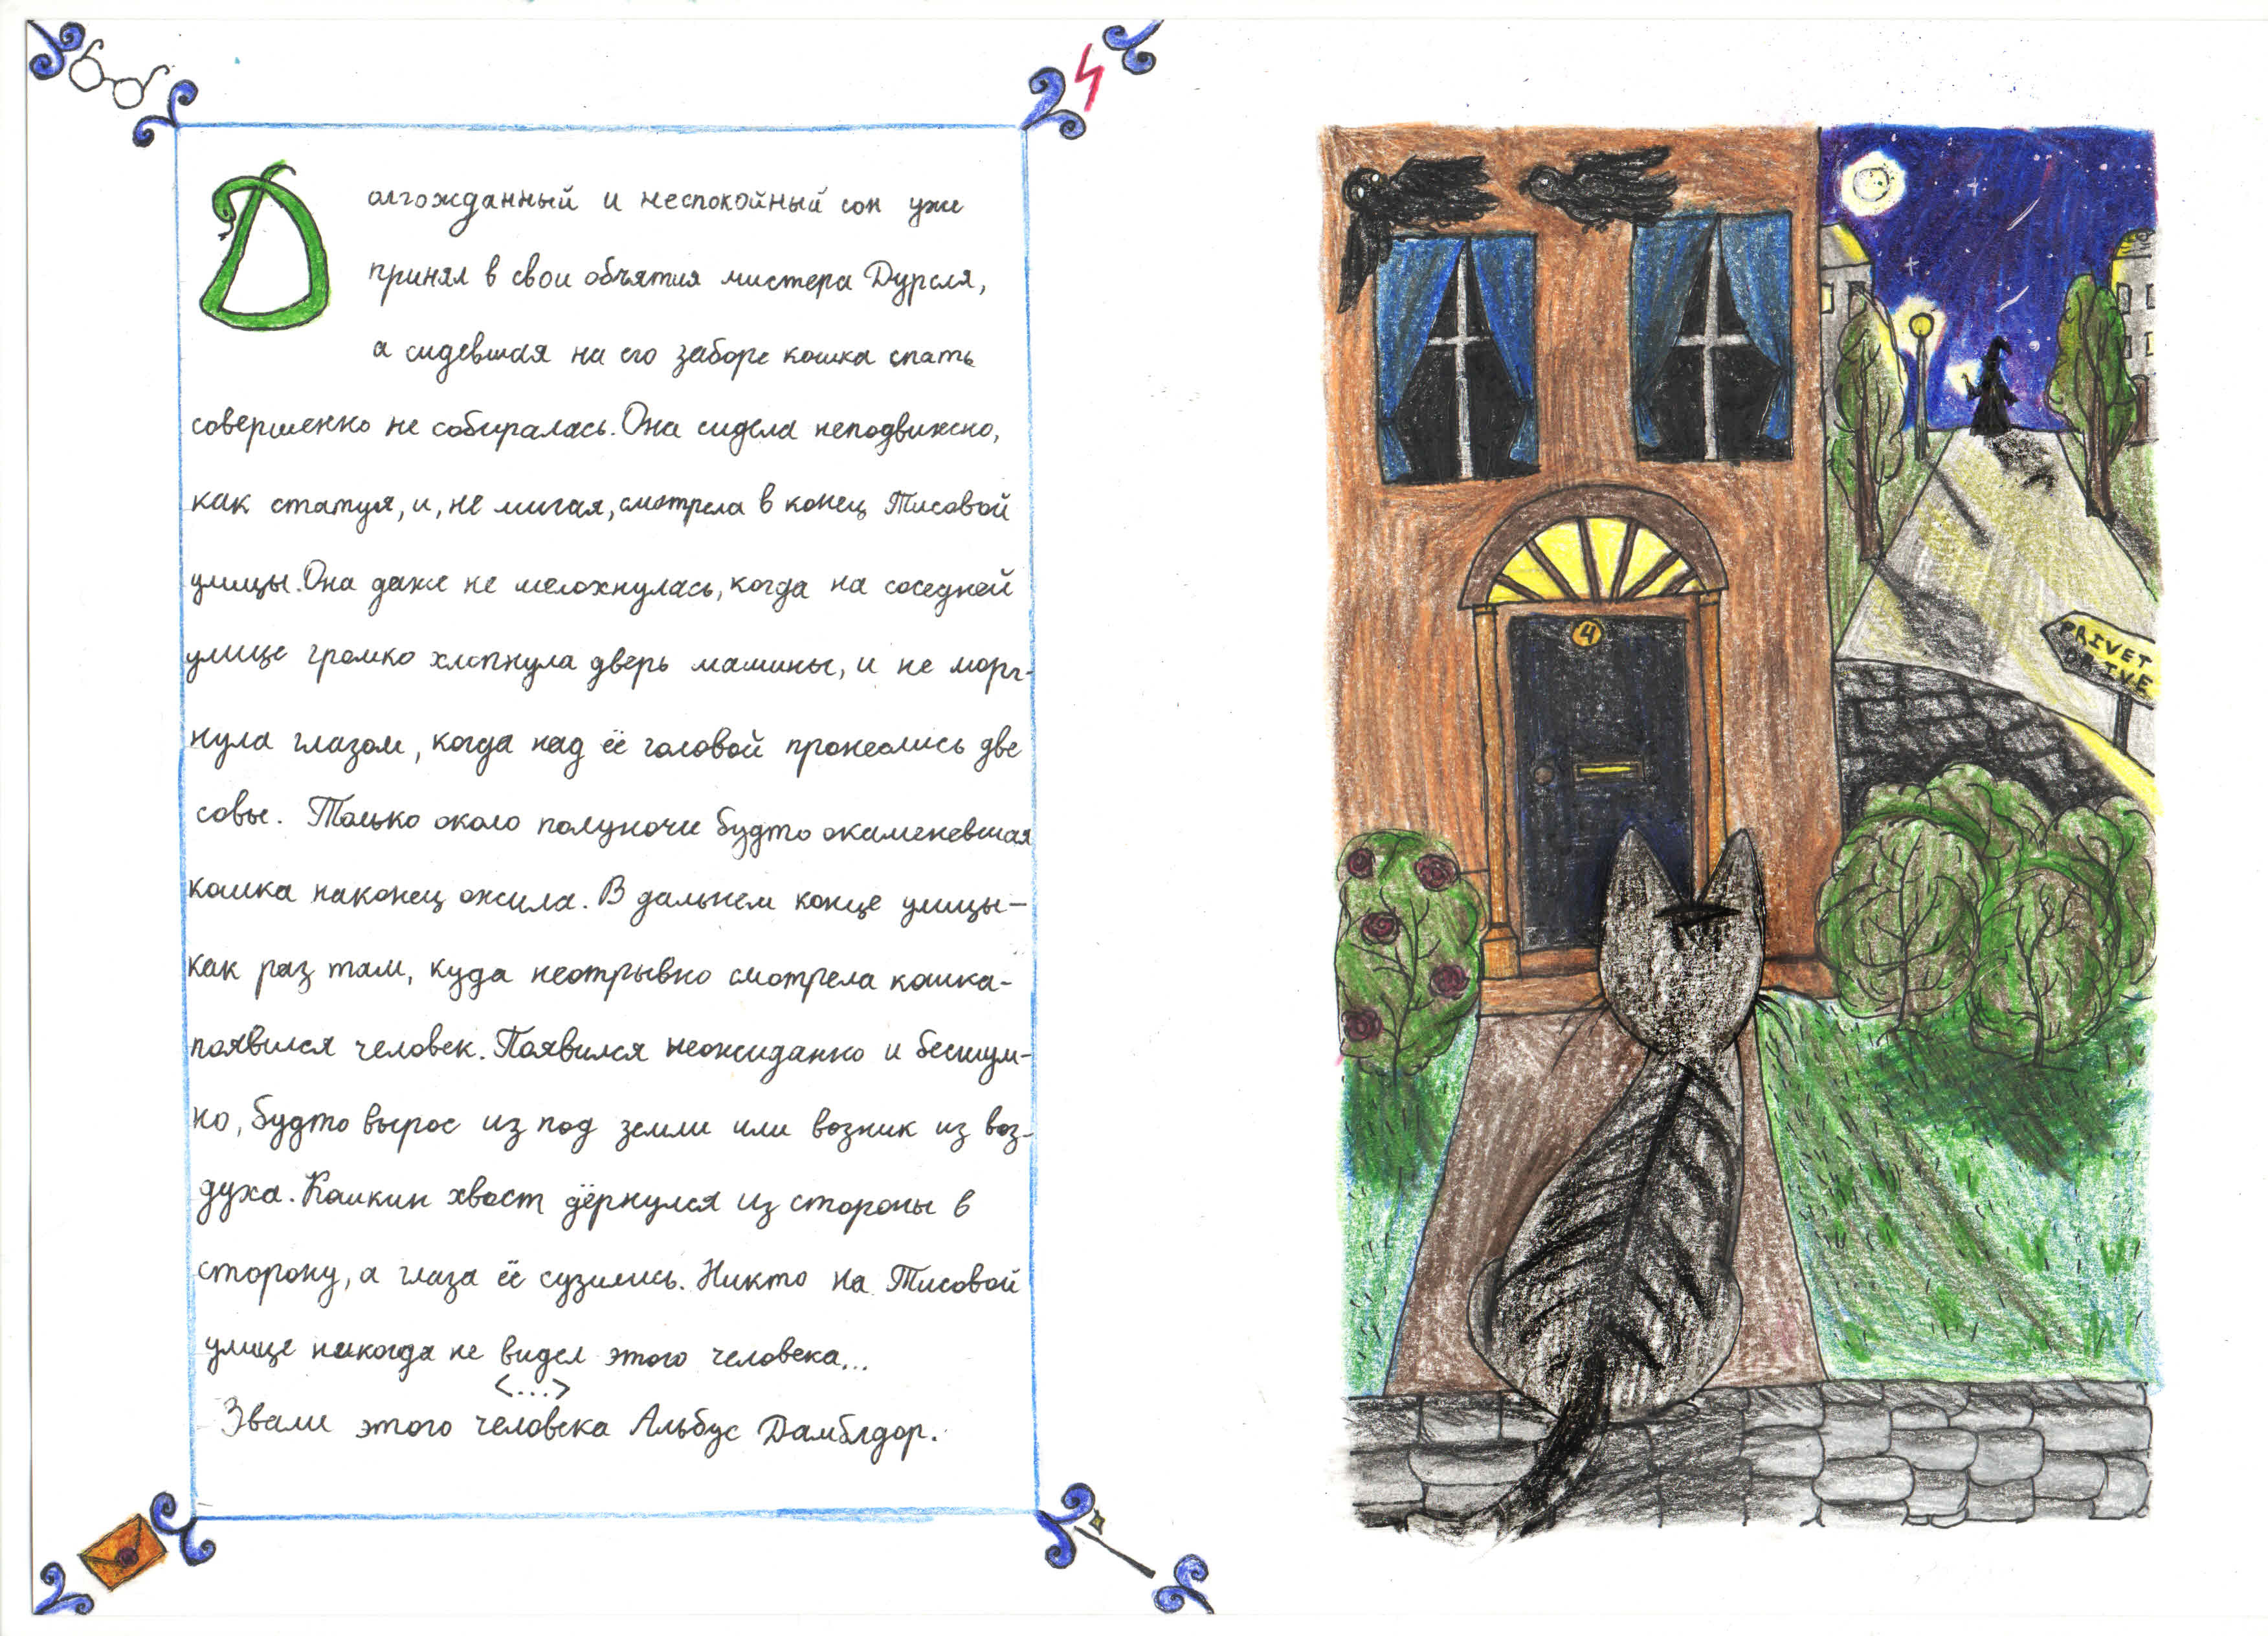 Долгожданный и неспокойный сон уже
принял в свои объятия мистера Дурсля,
а сидевшая на его заборе кошка спать
совершенно не собиралась. Она сидела неподвижно,
как статуя, и, не мигая, смотрела в конец Тисовой
улицы. Она даже не шелохнулась, когда на соседней
улице громко хлопнула дверь машины, и не морг-
нула глазом, когда над её головой пронеслись две
совы. Только около полуночи будто окаменевшая
кошка наконец ожила. В дальнем конце улицы —
как раз там, куда неотрывно смотрела кошка -
появился человек. Появился неожиданно и бесшум-
но, будто вырос из под земли или возник из воз-
духа. Кошкин хвост дёрнулся из стороны в
сторону, а глаза её сузились. Никто на Тисовой
улице никогда не видел этого человека...
<...>
Звали этого человека Альбус Дамблдор.
4
PRIVET
DRIVE